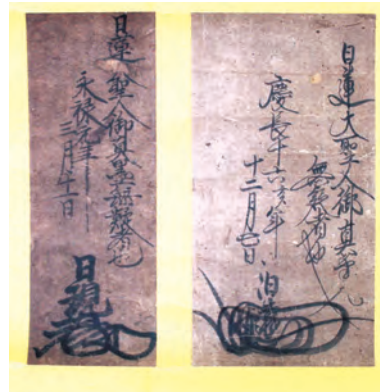 日蓮大聖人御真筆
無疑者也
慶長十六亥年
十二月日
日蓮聖人御真筆無疑者也
永禄元年
三月十一日
日現